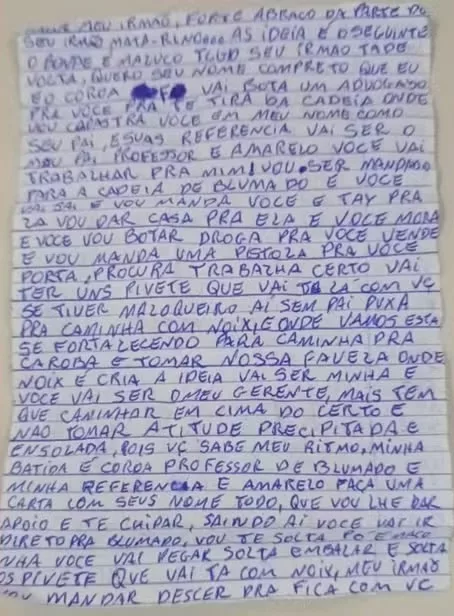 MEU IRMÃO, FORTE ABRAÇO DA PARTE DO
SEU IRMÃO MATA-RINDOOO AS IDEIA E DSEGUINTE
O BONDE E MALUCO TGGD SEU IRMÃO TADE
VOLTA, QUERO SEU NOME COMPRETO QUE EU
EO COROA VAI BOTA UM ADVOGADO
PRA VOCE PRA TE TIRA DA CADEIA ONDE
VOU CAPASTRA VOCE EM MEU NOME COMO
SEU PAI, ESUAS REFERENCIA VAI SER O
MEU PAI PROFESSOR E AMARELO VOCE VAI
TRABALHAR PRA MIM, VOU SER MANDADO
PARA A CADEIA DE BLUMADO E VOCE
VAI SAI E VOU MANDA VOCE E TAY PRA
LA VOU DAR CASA PRA ELA E VOCE MORA
E VOCE VOU BOTAR DROGA PRA VOCE VENDE
E VOU MANDA UMA PISTOZA PRA VOCE
PORTA, PROCURA TRABALHA CERTO VAI
TER UNS PIVETE QUE VAI TA LÁ COM VC
SE TIVER MALOQUEIRO AÍ SEM PAI PUXA
PRA CAMINHA COM NOIX, E ONDE VAMOS ESTA
SE FORTALECENDO PARA CAMINHA PRA
CAROBA E TOMAR NOSSA FAVEZA ONDE
NOIX É CRIA A IDEIA VAI SER MINHA E
VOCE VAI SER O MEU GERENTE, MAIS TEM
QUE CAMINHAR EM CIMA DO CERTO E
NÃO TOMAR ATITUDE PRECIPITADA E
ENSOLADA, POIS VC SABE MEU RITMO, MINHA
BATIDA É COROA PROFESSOR DE BLUMADO E
MINHA REFERENCIA E AMARELO FAÇA UMA
CARTA COM SEUS NOME TODO, QUE VOU LHE DAR
APOIO E TE CUIDAR, SAINDO AÍ VOCE VAI IR
DIRETO PRA BLUMADO, VOU TE SOLTA PÓ E MACO
NHA VOCE VAI PEGAR SOLTA EMBALAR E SOLTA
OS PIVETE QUE VAI TA COM NOIX, MEU IRMÃO
VOU MANDAR DESCER PRA FICA COM VC